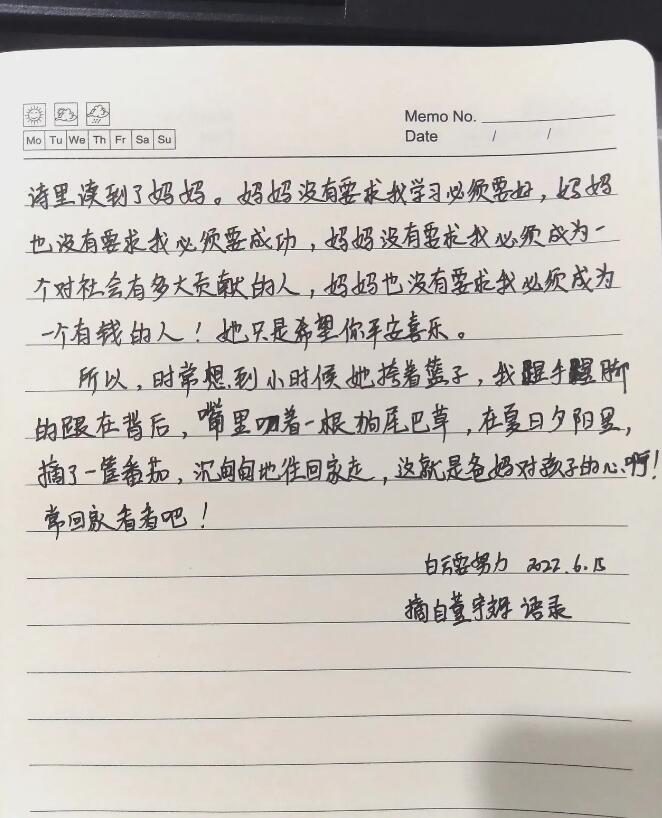 Memo No.
Mo Tu We Th Fr Sa Su
Date / /
诗里读到了妈妈。妈妈没有要求我学习必须要好，妈妈
也没有要求我必须要成功，妈妈没有要求我必须成为一
个对社会有多大贡献的人，妈妈也没有要求我必须成为
一个有钱的人！她只是希望你平安喜乐。
所以，时常想到小时候她挎着篮子，我跟手跟脚
的跟在背后，嘴里叼着一根狗尾巴草，在夏日夕阳里，
摘了一筐番茄，沉甸甸地往回家走，这就是爸妈对孩子的心啊！
常回家看看吧！
白云要努力 2022.6.15
摘自董宇辉语录